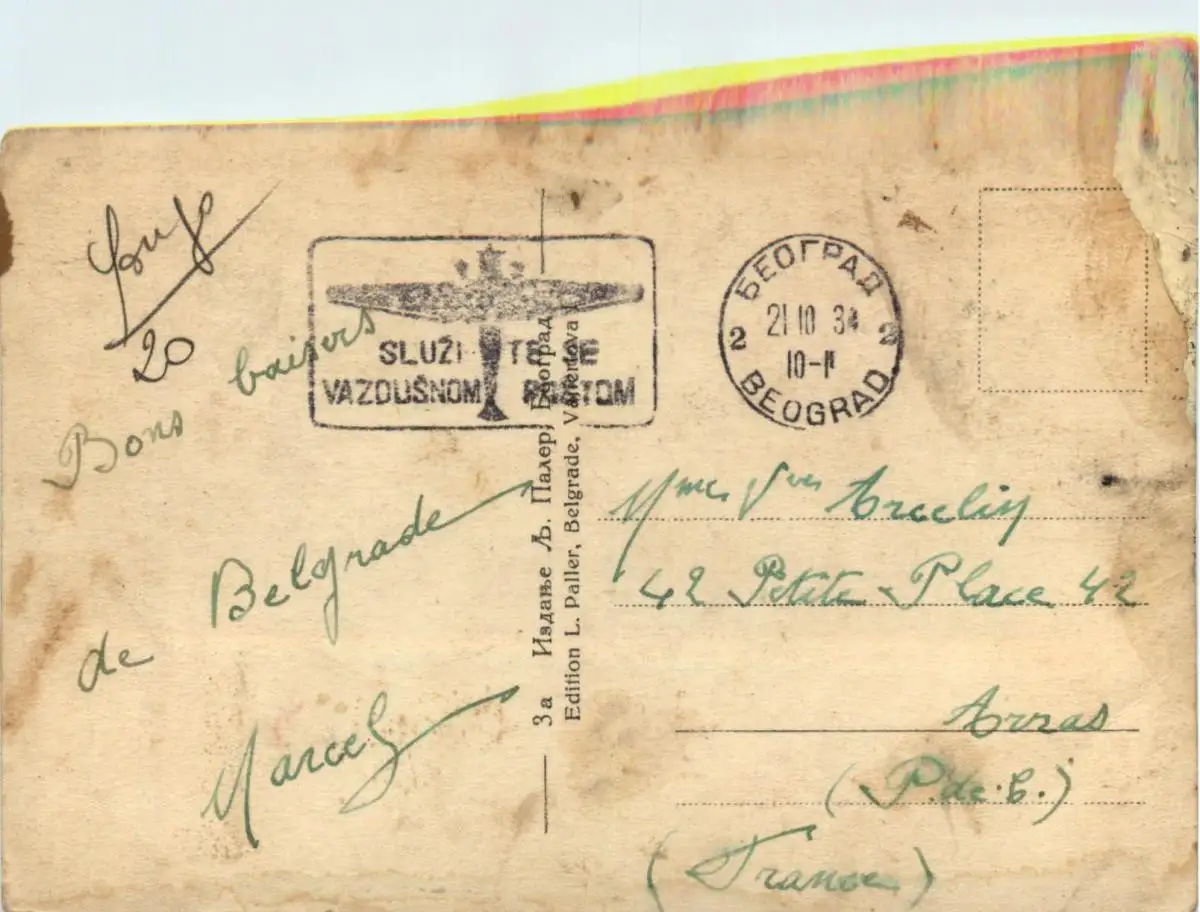 20
Bons baisers
de Belgrade
Marcel
SLUŽI TE SE
VAZDUŠNOM POŠTOM
БЕОГРАД
2 21 10 34 2
10-11
BEOGRAD
За Издање Љ. Палер, Београд
Edition L. Paller, Belgrade,
Mme Vve
42 Petite Place 42
Arras
(P. de. C.)
(France)